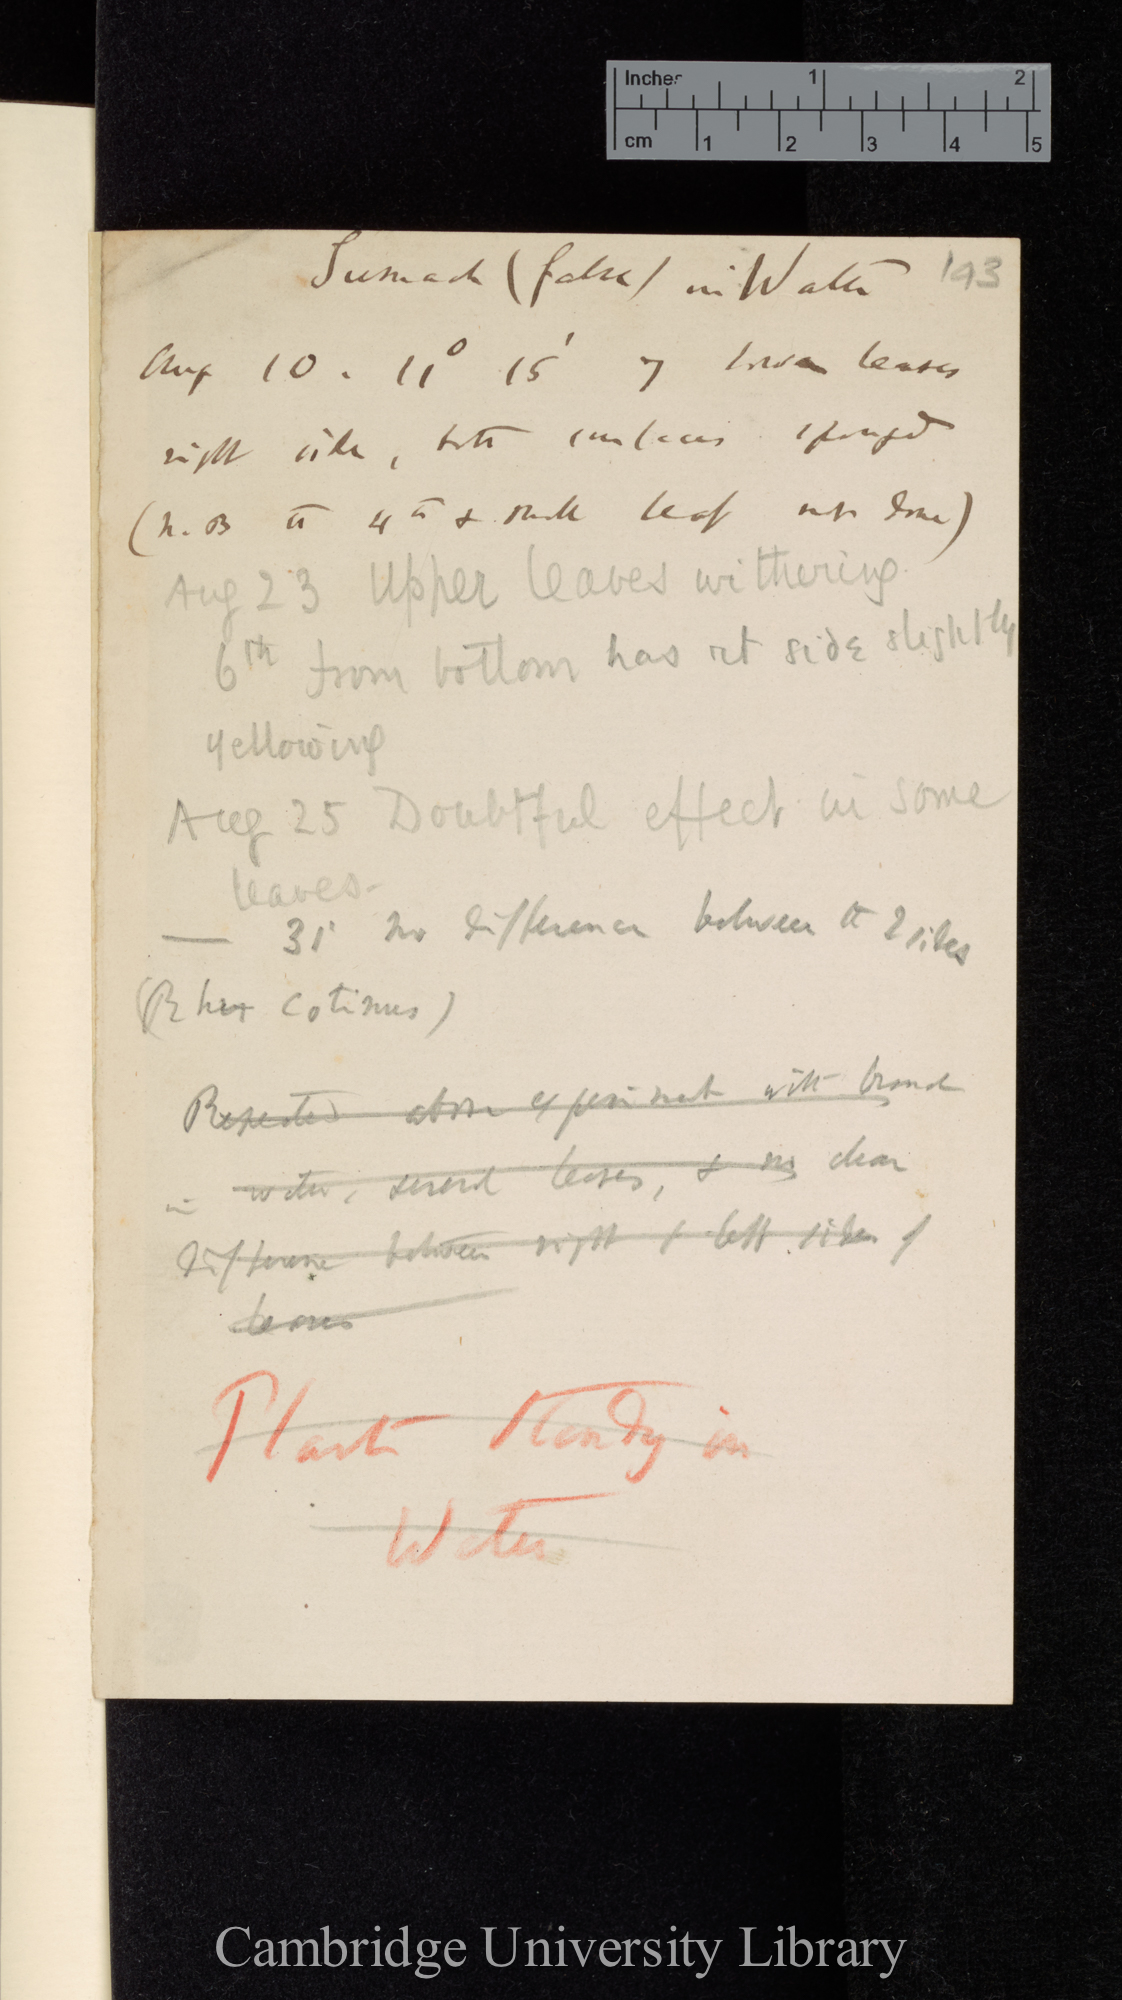 Inches 1 2
cm 1 2 3 4 5
193
Sumach (false) in Water
Aug 10. 11° 15' 7 lower leaves
right side, both surfaces sponged
(N.B th 4th & small leaf not done)
Aug 23 Upper leaves withering
6th from bottom has rt side slightly
yellowing
Aug 25 Doubtful effect in some
leaves-
— 31' No difference between th 2 sides
(Rhus cotinus)
Repeated above experiment with branch
in water, several leaves, & no clear
difference between right & left sides of
leaves
Plant Standg in
Water
Cambridge University Library